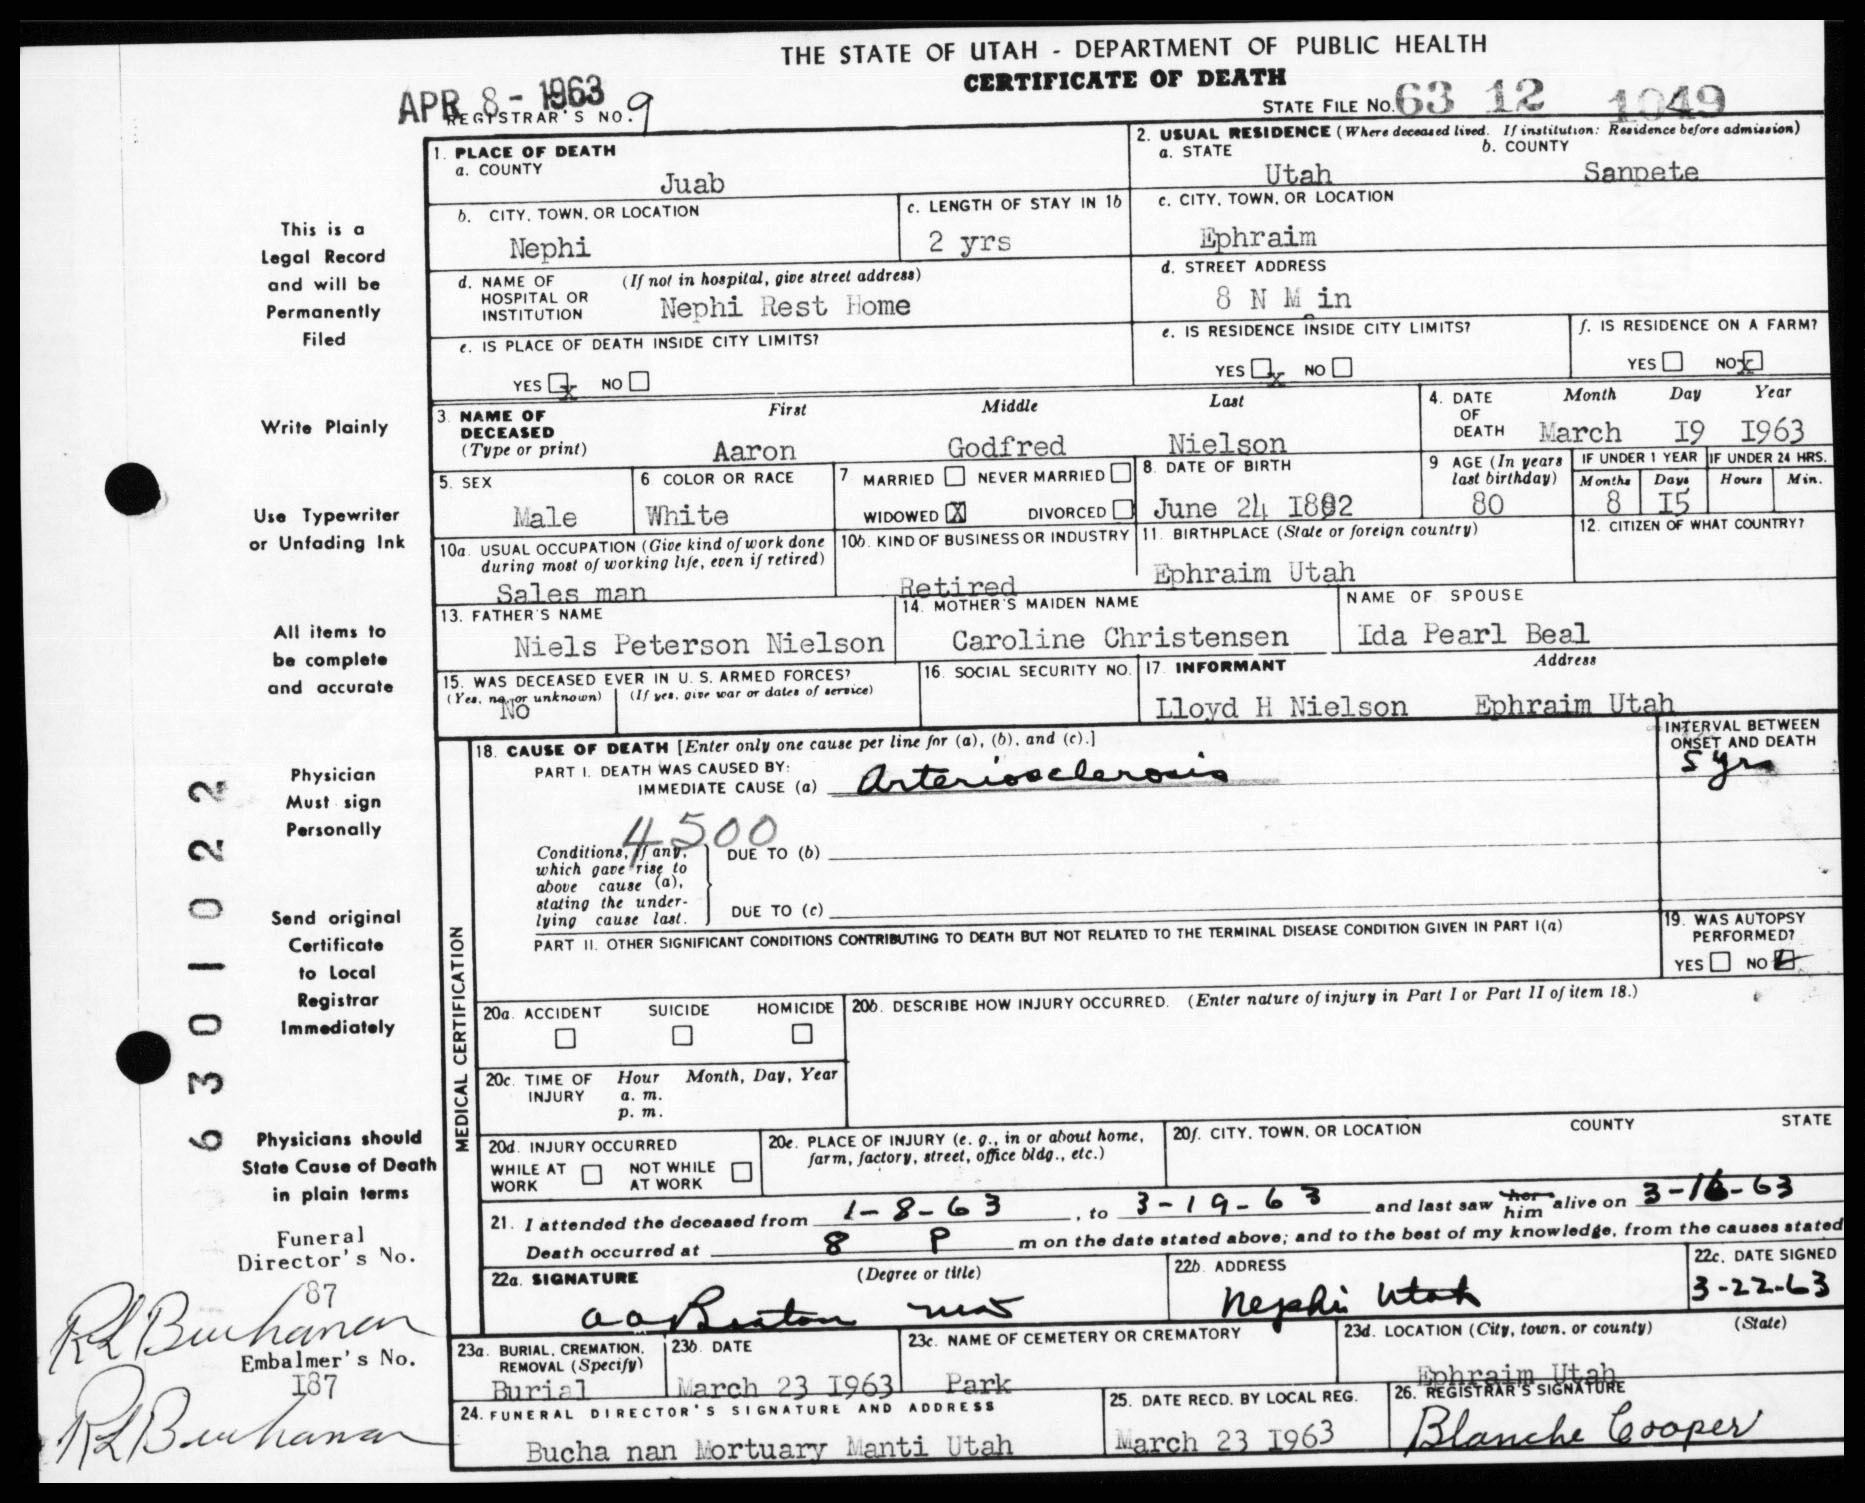 THE STATE OF UTAH - DEPARTMENT OF PUBLIC HEALTH
CERTIFICATE OF DEATH
APR 8 - 1963
REGISTRAR'S NO. 9
STATE FILE NO. 63 12 1049
1. PLACE OF DEATH
a. COUNTY
Juab
2. USUAL RESIDENCE (Where deceased lived. If institution: Residence before admission)
a. STATE b. COUNTY
Utah Sanpete
b. CITY, TOWN, OR LOCATION
Nephi
c. LENGTH OF STAY IN 1b
2 yrs
c. CITY, TOWN, OR LOCATION
Ephraim
d. NAME OF HOSPITAL OR INSTITUTION (If not in hospital, give street address)
Nephi Rest Home
d. STREET ADDRESS
8 N Main
e. IS PLACE OF DEATH INSIDE CITY LIMITS?
YES x NO
e. IS RESIDENCE INSIDE CITY LIMITS?
YES x NO
f. IS RESIDENCE ON A FARM?
YES NO x
3. NAME OF DECEASED (Type or print)
First Middle Last
Aaron Godfred Nielson
4. DATE OF DEATH
Month Day Year
March I9 I963
5. SEX
Male
6 COLOR OR RACE
White
7 MARRIED NEVER MARRIED
WIDOWED X DIVORCED
8. DATE OF BIRTH
June 24 I882
9 AGE (In years last birthday)
80
IF UNDER 1 YEAR
Months Days
8 I5
IF UNDER 24 HRS.
Hours Min.
10a. USUAL OCCUPATION (Give kind of work done during most of working life, even if retired)
Sales man
10b. KIND OF BUSINESS OR INDUSTRY
Retired
11. BIRTHPLACE (State or foreign country)
Ephraim Utah
12. CITIZEN OF WHAT COUNTRY?
13. FATHER'S NAME
Niels Peterson Nielson
14. MOTHER'S MAIDEN NAME
Caroline Christensen
NAME OF SPOUSE
Ida Pearl Beal
15. WAS DECEASED EVER IN U. S. ARMED FORCES?
(Yes, no, or unknown) (If yes, give war or dates of service)
No
16. SOCIAL SECURITY NO.
17. INFORMANT Address
Lloyd H Nielson Ephraim Utah
MEDICAL CERTIFICATION
18. CAUSE OF DEATH [Enter only one cause per line for (a), (b), and (c).]
INTERVAL BETWEEN ONSET AND DEATH
PART I. DEATH WAS CAUSED BY:
IMMEDIATE CAUSE (a) Arteriosclerosis 5 yrs
4500
Conditions, if any, which gave rise to above cause (a), stating the underlying cause last.
DUE TO (b)
DUE TO (c)
PART II. OTHER SIGNIFICANT CONDITIONS CONTRIBUTING TO DEATH BUT NOT RELATED TO THE TERMINAL DISEASE CONDITION GIVEN IN PART I(a)
19. WAS AUTOPSY PERFORMED?
YES NO
20a. ACCIDENT SUICIDE HOMICIDE
20b. DESCRIBE HOW INJURY OCCURRED. (Enter nature of injury in Part I or Part II of item 18.)
20c. TIME OF INJURY
Hour Month, Day, Year
a. m.
p. m.
20d. INJURY OCCURRED
WHILE AT WORK NOT WHILE AT WORK
20e. PLACE OF INJURY (e. g., in or about home, farm, factory, street, office bldg., etc.)
20f. CITY, TOWN, OR LOCATION COUNTY STATE
21. I attended the deceased from 1-8-63, to 3-19-63 and last saw her him alive on 3-16-63
Death occurred at 8 P m on the date stated above; and to the best of my knowledge, from the causes stated
22a. SIGNATURE (Degree or title)
22b. ADDRESS
Nephi Utah
22c. DATE SIGNED
3-22-63
23a. BURIAL, CREMATION, REMOVAL (Specify)
Burial
23b. DATE
March 23 I963
23c. NAME OF CEMETERY OR CREMATORY
Park
23d. LOCATION (City, town, or county) (State)
Ephraim Utah
24. FUNERAL DIRECTOR'S SIGNATURE AND ADDRESS
Bucha nan Mortuary Manti Utah
25. DATE RECD. BY LOCAL REG.
March 23 I963
26. REGISTRAR'S SIGNATURE
Blanche Cooper
This is a
Legal Record
and will be
Permanently
Filed
Write Plainly
Use Typewriter
or Unfading Ink
All items to
be complete
and accurate
Physician
Must sign
Personally
Send original
Certificate
to Local
Registrar
Immediately
Physicians should
State Cause of Death
in plain terms
6301022
Funeral
Director's No.
187
RL Buchanan
Embalmer's No.
I87
RL Buchanan